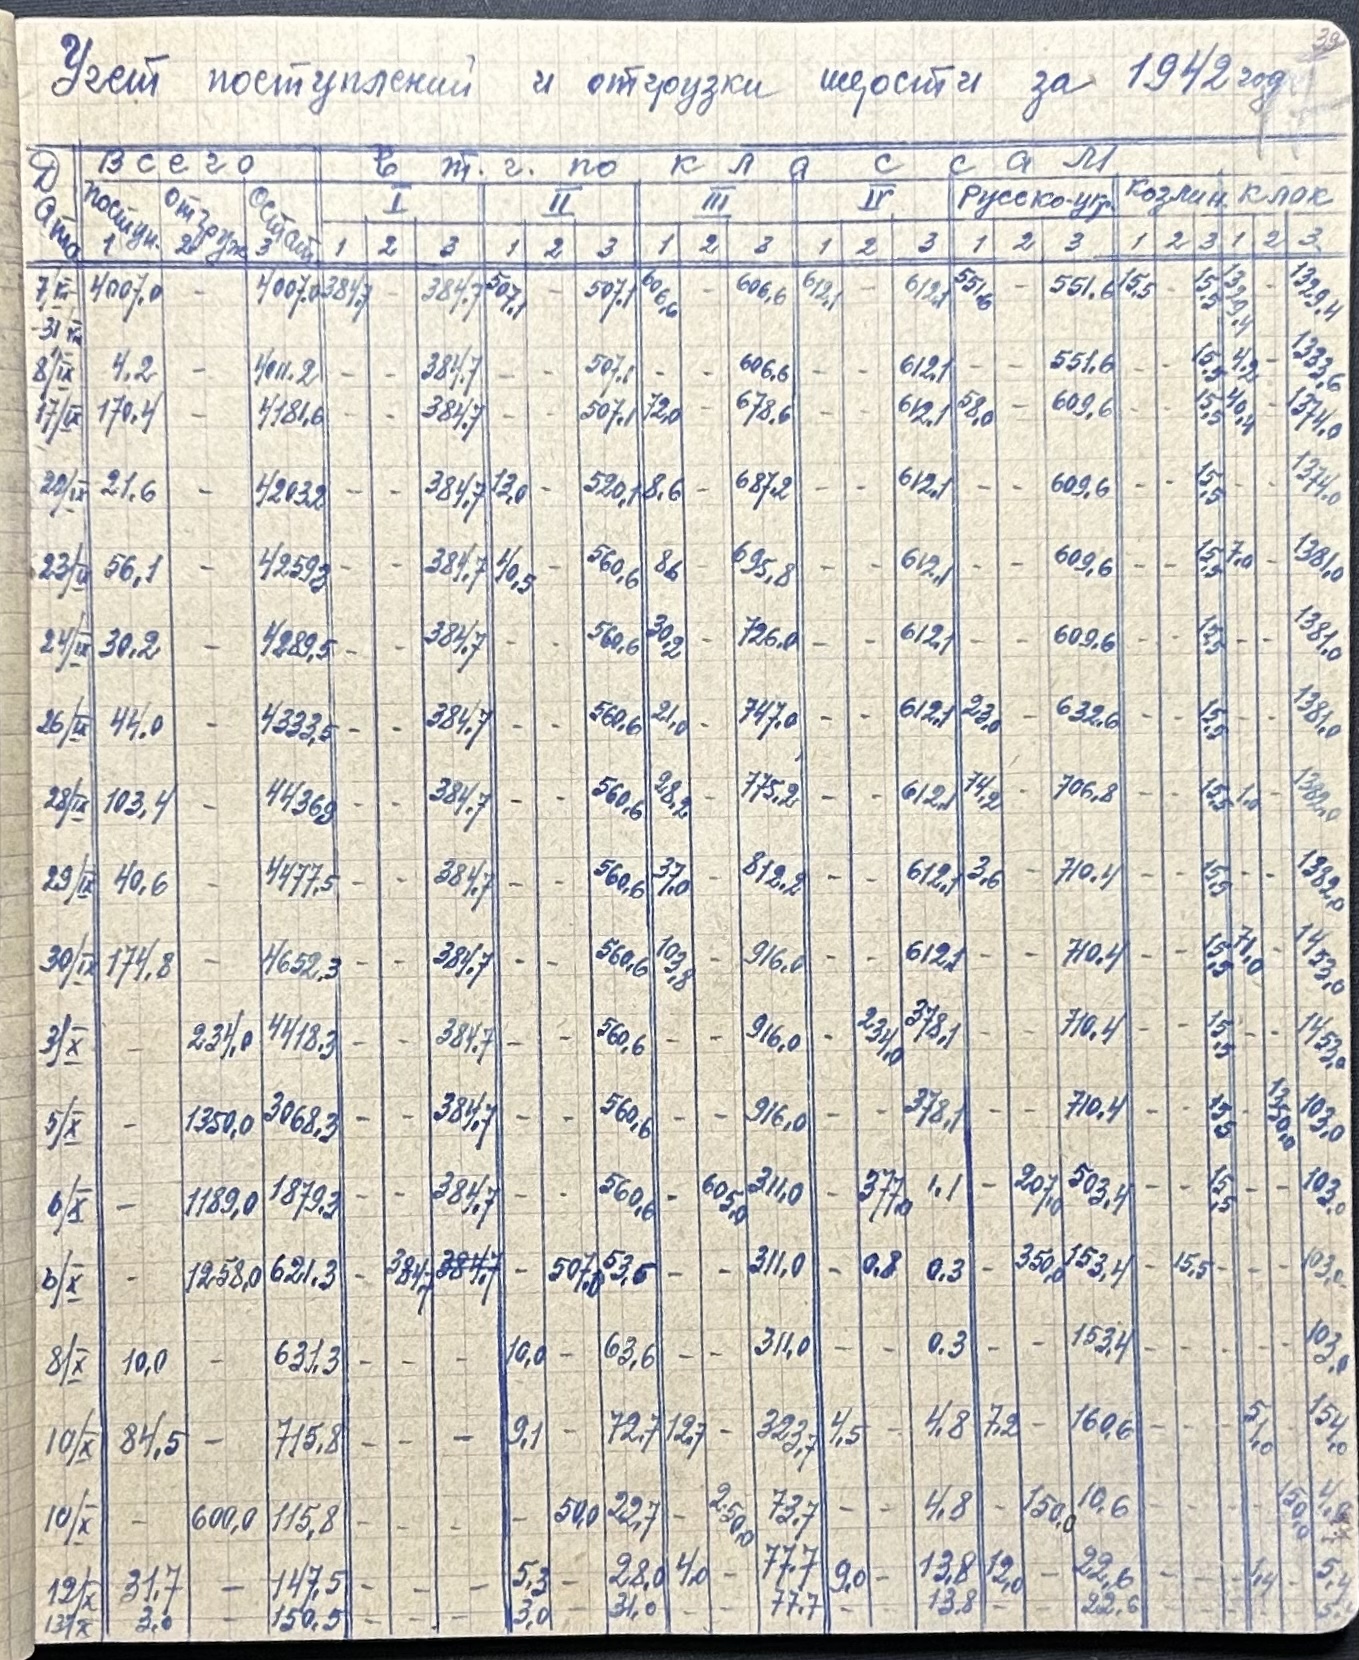 39
Учет поступлений и отгрузки шерсти за 1942 год
Дата Всего в т.ч. по классам
поступ. отгруж остат I II III IV Русско-уг. козлин клок
1 2 3 1 2 3 1 2 3 1 2 3 1 2 3 1 2 3 1 2 3 1 2 3
4007.0 - 4007.0 384,7 - 384.7 507,1 - 507.1 606,6 - 606,6 612,1 - 612,1 551,6 - 551.6 15,5 - 15,5 1329,4 - 1329.4
8/IX 4.2 - 4011.2 - - 384.7 - - 507.1 - - 606.6 - - 612.1 - - 551.6 - - 15,5 4.2 - 1333,6
17/IX 170.4 - 4181.6 - - 384.7 - - 507.1 72,0 - 678.6 - - 612.1 58,0 - 609.6 - - 15,5 40,4 - 1374.0
21.6 - 4203.2 - - 384.7 13,0 - 520,1 8,6 - 687.2 - - 612.1 - - 609.6 - - 15,5 - - 1374.0
23/IX 56,1 - 4259,3 - - 384.7 40,5 - 560,6 8,6 - 695,8 - - 612.1 - - 609,6 - - 15,5 7,0 - 1381,0
24/IX 30.2 - 4289,5 - - 384.7 - - 560,6 30,2 - 726.0 - - 612.1 - - 609.6 - - 15,5 - - 1381,0
26/IX 44.0 - 4333,5 - - 384.7 - - 560,6 21,0 - 747.0 - - 612.1 23,0 - 632.6 - - 15,5 - - 1381,0
28/IX 103,4 - 4436,9 - - 384.7 - - 560,6 28,2 - 775,2 - - 612,1 74,2 - 706,8 - - 15,5 1,0 - 1382,0
29/IX 40,6 - 4477,5 - - 384,7 - - 560,6 37,0 - 812.2 - - 612,1 3,6 - 710.4 - - 15,5 - - 1382,0
30/IX 174,8 - 4652,3 - - 384.7 - - 560,6 103,8 - 916.0 - - 612.1 - - 710.4 - - 15,5 71,0 - 1453,0
3/X - 234,0 4418,3 - - 384.7 - - 560,6 - - 916,0 - 234,0 378,1 - - 710.4 - - 15,5 - - 1453,0
5/X - 1350,0 3068,3 - - 384,7 - - 560,6 - - 916,0 - - 378,1 - - 710.4 - - 15,5 - 1350,0 103,0
6/X - 1189,0 1879,3 - - 384,7 - - 560,6 - 605,0 311,0 - 377,0 1.1 - 207,0 503,4 - - 15,5 - - 103,0
6/X - 1258,0 621,3 - 384,7 384,7 - 507,0 53,6 - - 311,0 - 0.8 0.3 - 350,0 153,4 - 15,5 - - - 103,0
8/X 10,0 - 631,3 - - - 10,0 - 63,6 - - 311,0 - - 0.3 - - 153,4 - - - - - 103,0
10/X 84,5 - 715,8 - - - 9,1 - 72,7 12,7 - 323,7 4,5 - 4,8 7,2 - 160,6 - - - 51,0 - 154,0
10/X - 600,0 115,8 - - - - 50,0 22,7 - 250,0 73,7 - - 4,8 - 150,0 10,6 - - - - 150,0 4,0
12/X 31,7 - 147,5 - - - 5,3 - 28,0 4,0 - 77.7 9,0 - 13,8 12,0 - 22,6 - - - 1,4 - 5,4
13/X 3.0 - 150.5 - - - 3,0 - 31,0 - - 77.7 - - 13.8 - - 22.6 - - - - -